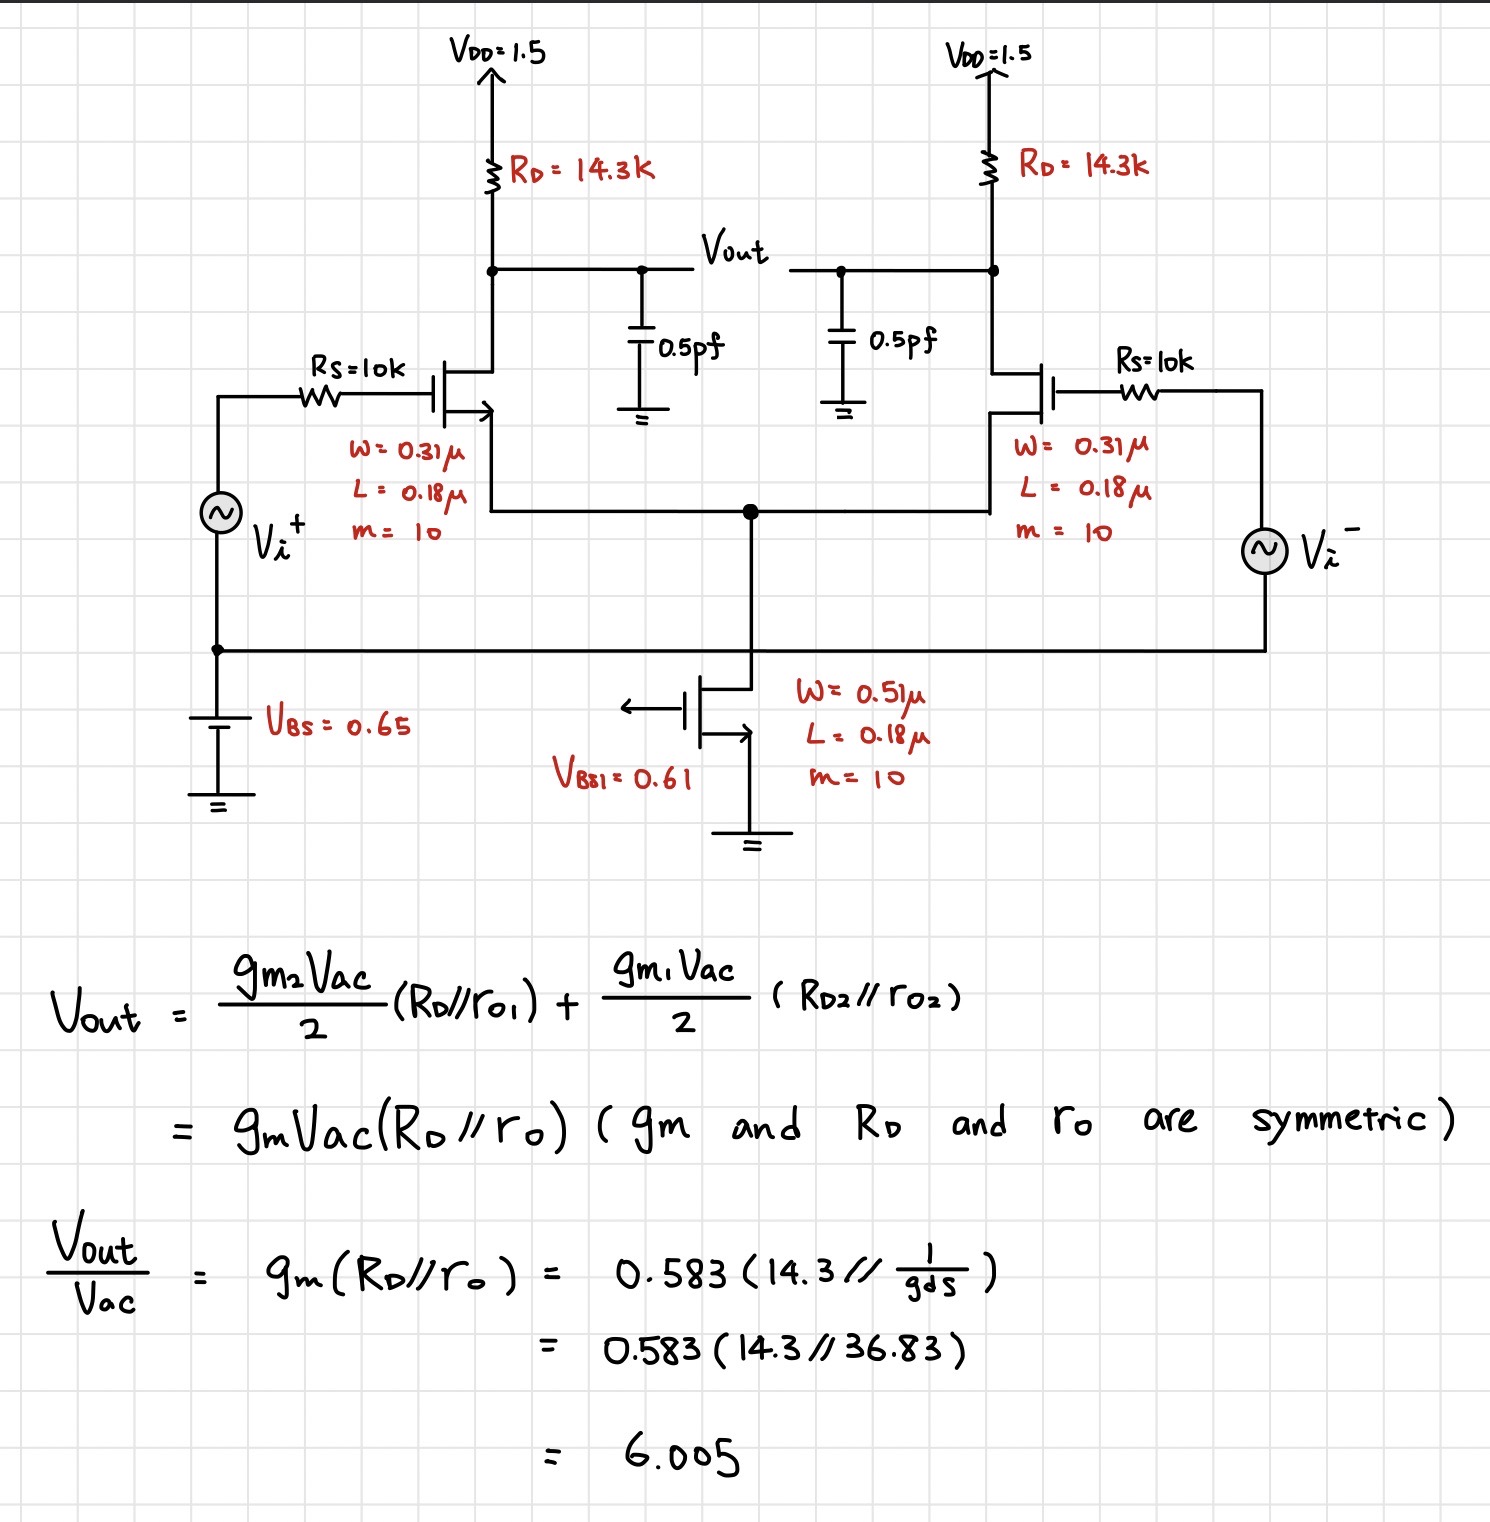 VDD=1.5
VDD=1.5
RD = 14.3k
RD = 14.3k
Vout
0.5pf
0.5pf
Rs=10k
Rs=10k
W= 0.31μ
L = 0.18μ
m= 10
W= 0.31μ
L = 0.18μ
m = 10
Vi+
Vi-
VBS = 0.65
W= 0.51μ
L= 0.18μ
m= 10
VBS1=0.61
Vout = gm2Vac/2 (RD//ro1) + gm1Vac/2 (RD2//ro2)
= gmVac(RD//ro) (gm and RD and ro are symmetric)
Vout/Vac = gm(RD//ro) = 0.583(14.3//1/gds)
= 0.583(14.3//36.83)
= 6.005